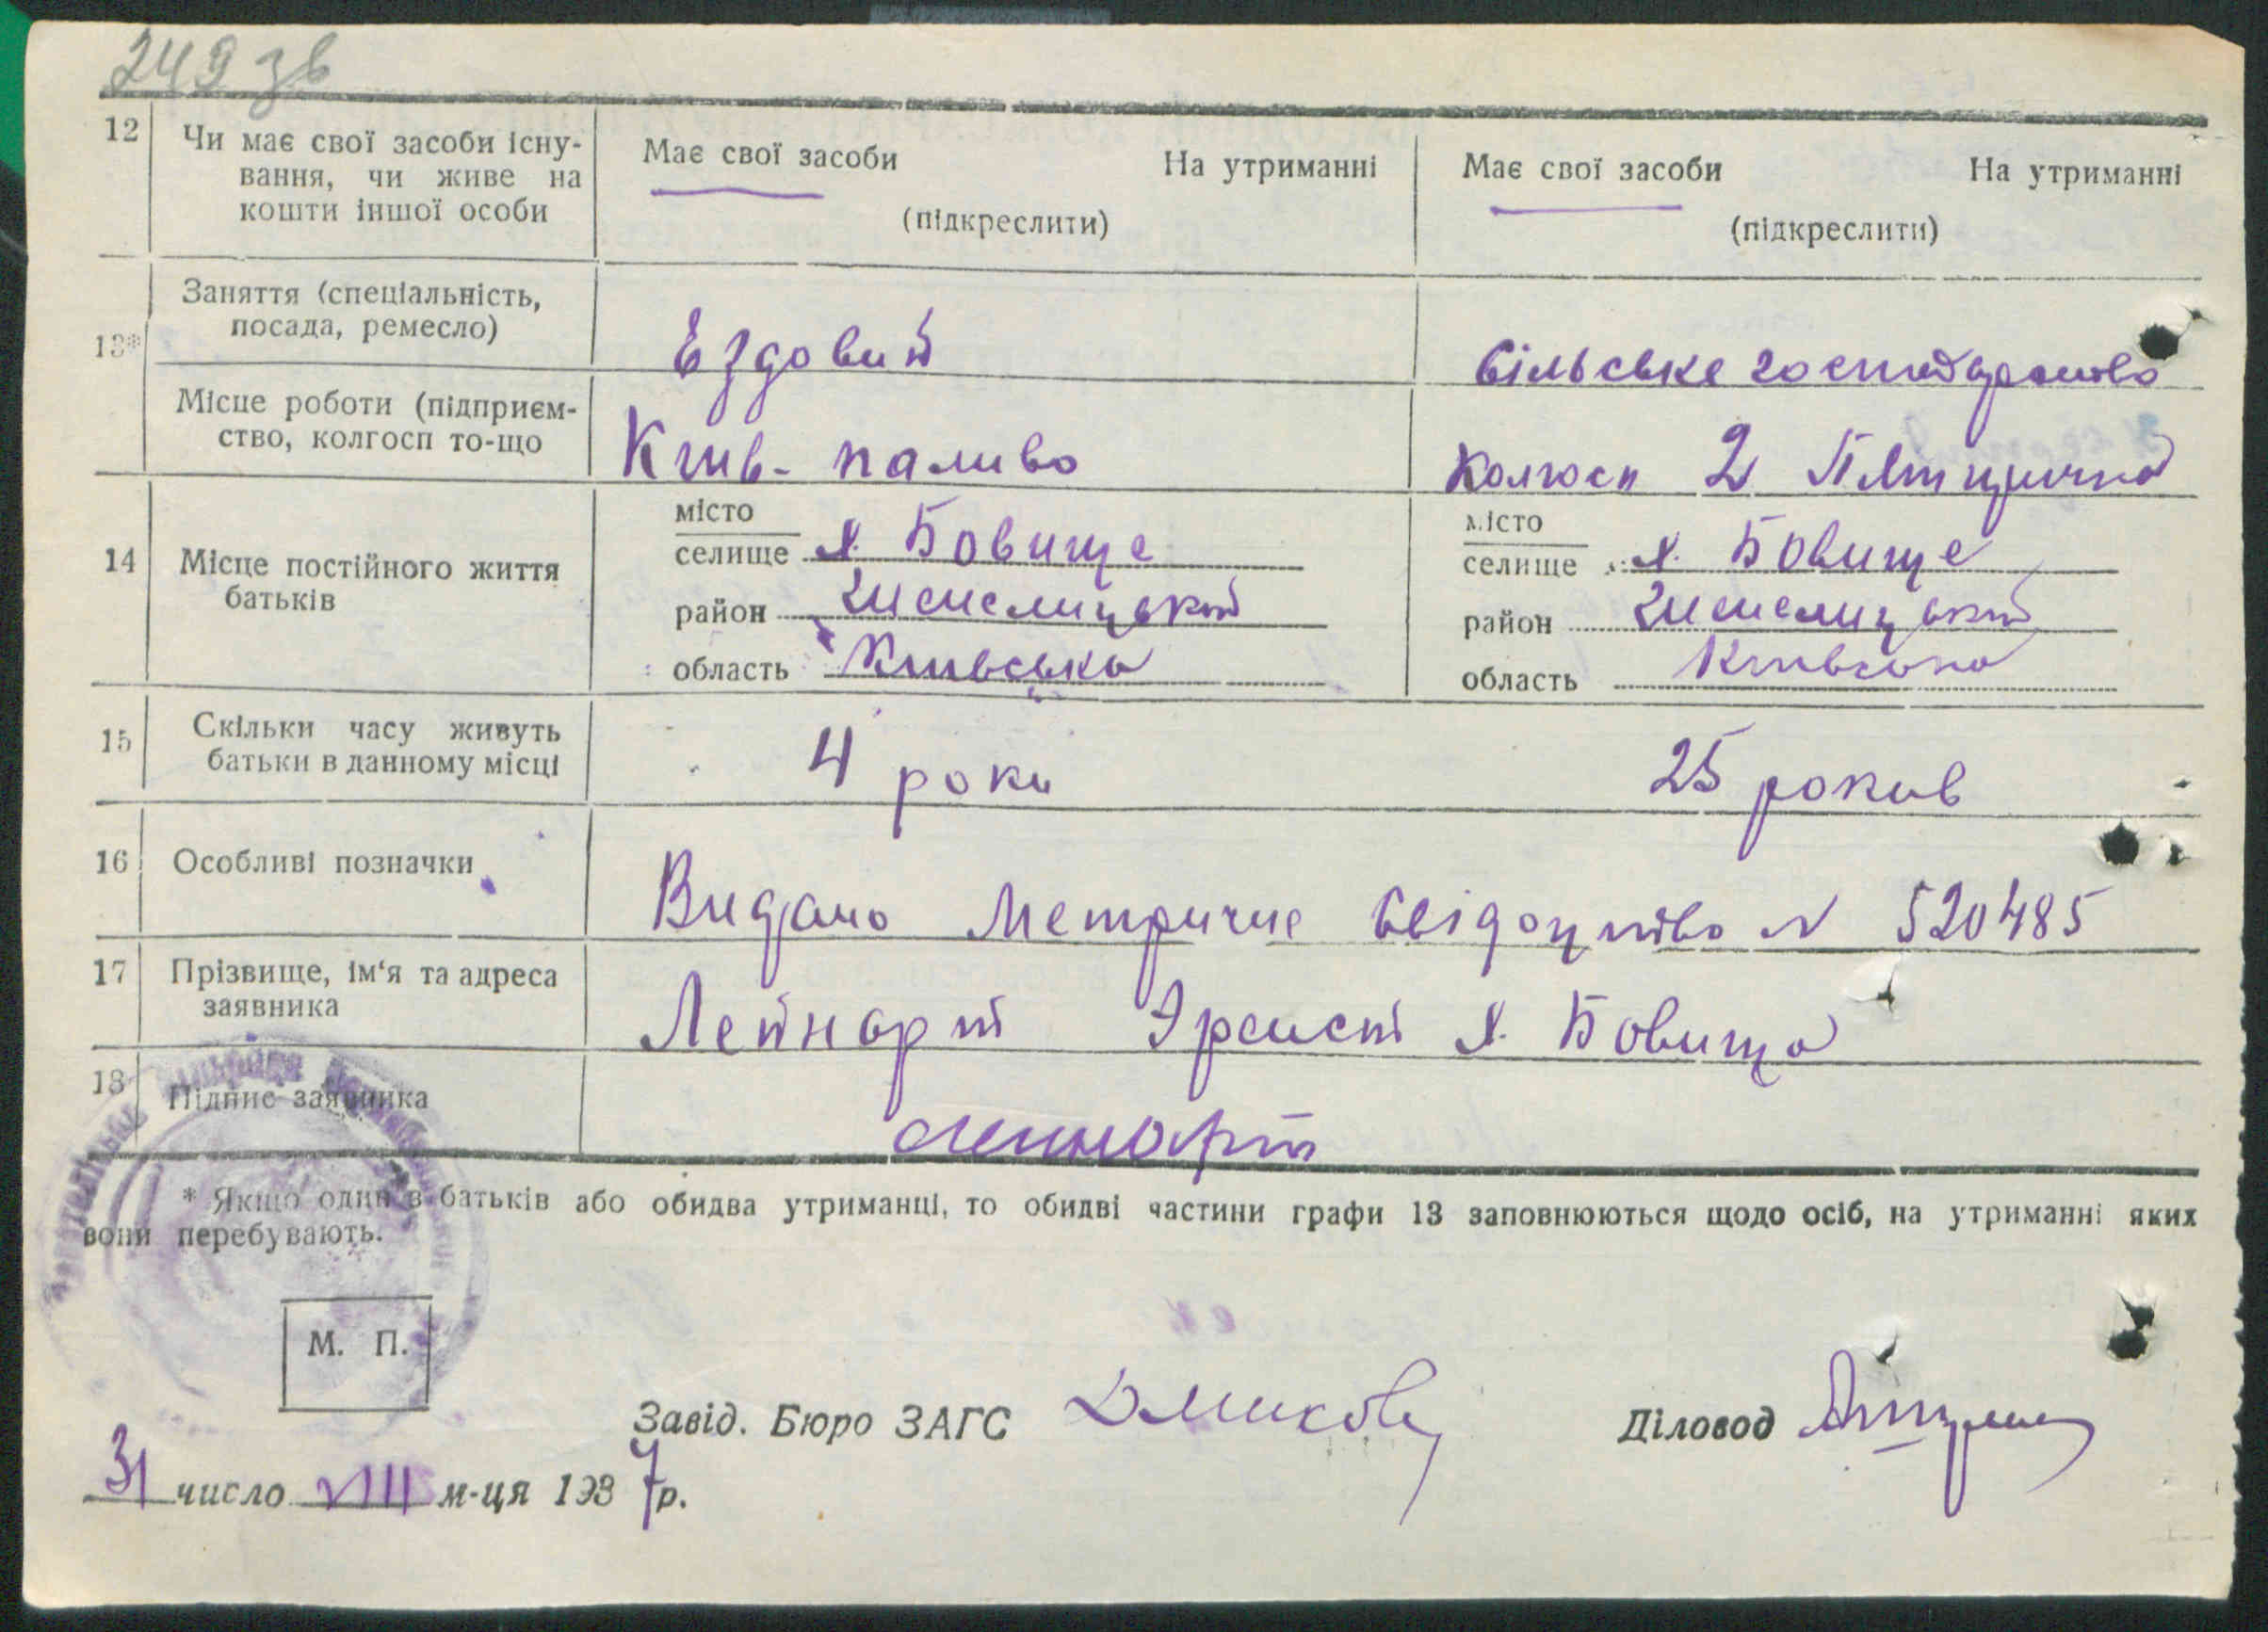 249 зв
12 Чи має свої засоби існу-
вання, чи живе на
кошти іншої особи
Має свої засоби На утриманні
(підкреслити)
Має свої засоби На утриманні
(підкреслити)
13*
Заняття (спеціальність,
посада, ремесло)
Ездовий
Сільське господарство
Місце роботи (підприєм-
ство, колгосп то-що
Київ- паливо
Колгосп 2 Пятирична
14 Місце постійного життя
батьків
місто
селище х. Бовище
район
область Київська
місто
селище х. Бовище
район
область Київська
15 Скільки часу живуть
батьки в данному місці
4 роки
25 років
16 Особливі позначки
Видано Метричне Свідоцтво N 520485
17 Прізвище, ім'я та адреса
заявника
Лейнарт х. Бовища
18 Підпис заявника
Лейнарт
* Якщо один з батьків або обидва утриманці, то обидві частини графи 13 заповнюються щодо осіб, на утриманні яких
вони перебувають.
М. П.
Завід. Бюро ЗАГС
Діловод
31 число VIII м-ця 1937р.